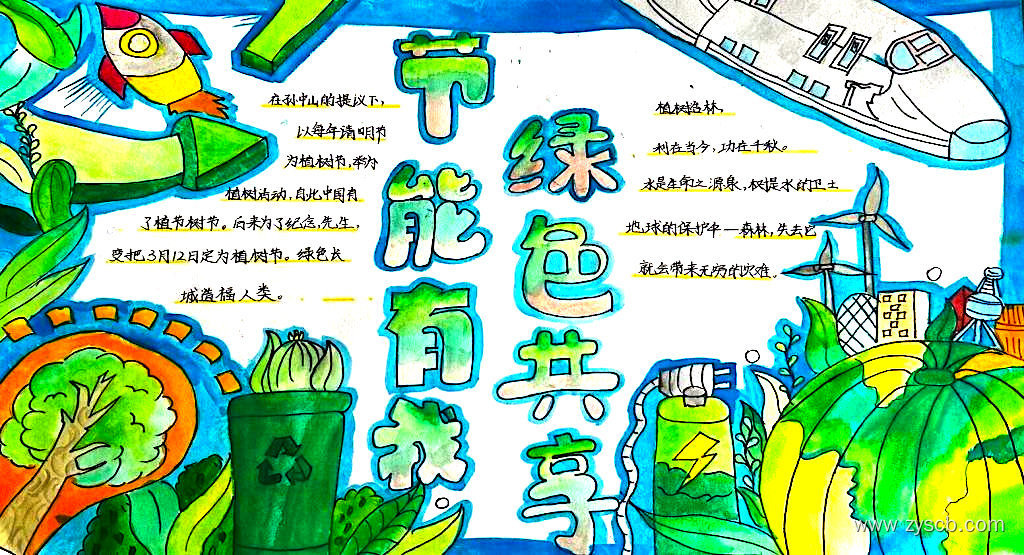 在孙中山的提议下，
以每年清明节
为植树节，举为
植树活动，自此中国有
了植节树节。后来为了纪念，先生，
变把3月12日定为植树节。绿色长
城造福人类。
节能有我
绿色共享
植树造林，
利在当今，功在千秋。
水是生命之源泉，提水的卫士
地球的保护中一森林，失去它
就会带来无穷的灾难。
www.zyscb.com